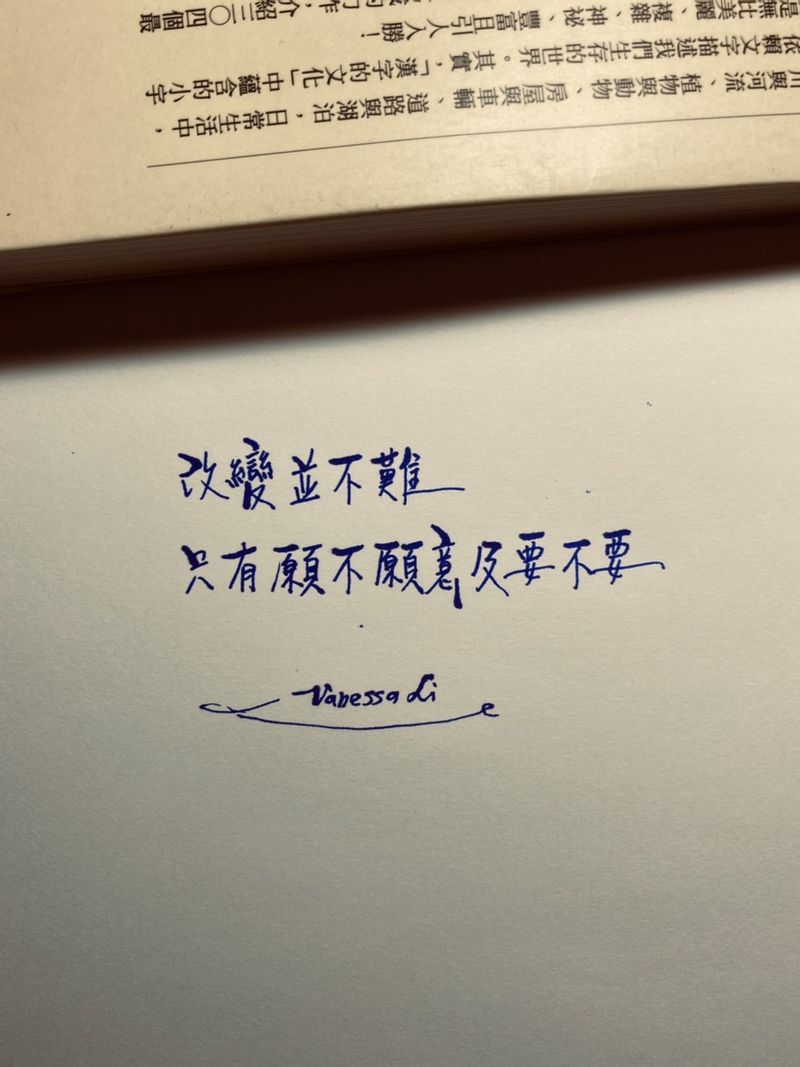 川與河流、植物與動物、房屋與車輛、道路與湖泊，日常生活中，
依賴文字描述我們生存的世界。其實，「漢字的文化」中蘊含的小字
是無比美麗、複雜、神祕、豐富且引人入勝！
作，介紹三〇四個最
改變並不難
只有願不願意及要不要
Vanessa Li